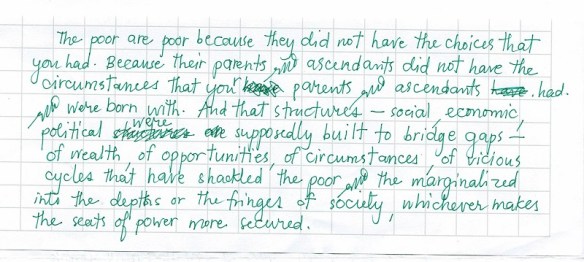 The poor are poor because they did not have the choices that
you had. Because their parents and ascendants did not have the
circumstances that your parents and ascendants had.
and were born with. And that structures – social, economic,
political were supposedly built to bridge gaps –
of wealth, of opportunities, of circumstances, of vicious
cycles that have shackled the poor and the marginalized
into the depths or the fringes of society, whichever makes
the seats of power more secured.